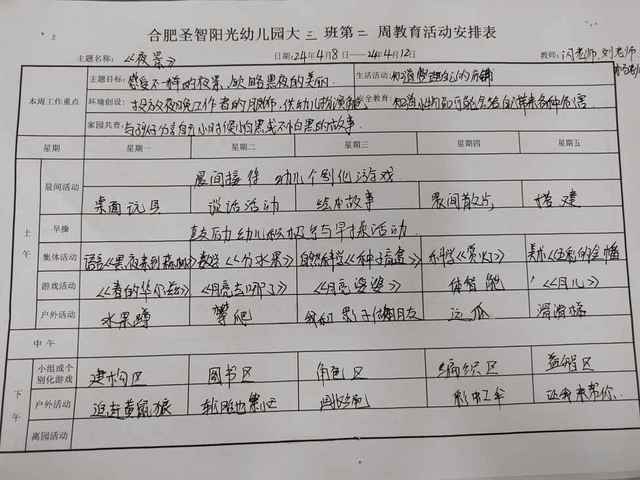 合肥圣智阳光幼儿园大 三 班第 二 周教育活动安排表
主题名称：《夜景》 日期：24年4月8日——24年4月12日 教师：闪老师、刘老师
本周工作重点 主题目标：感受不一样的夜景，欣赏黑夜的美丽. 生活活动：知道整理自己的床铺
环境创设：投放夜晚工作者的服饰，供幼儿表演 安全教育：知道小物品可能会给自己带来各种危害
家园共育：与孩子分享自己小时候怕黑或不怕黑的故事.
星期 星期一 星期二 星期三 星期四 星期五
上午 晨间活动 晨间接待 幼儿个别化游戏
桌面玩具 谈话活动 绘本故事 晨间散步 搭建
早操 鼓励幼儿积极参与早操活动
集体活动 语言《黑夜来到森林》 数学《分水果》 自然科学《种子盲盒》 科学《萤火》 美术
游戏活动 《春的华尔兹》 《月亮去哪了》 《月亮婆婆》 体智能 《月儿》
户外活动 水果蹲 攀爬 我和影子做朋友 运瓜 滑滑梯
中午
下午 小组或个别化游戏 建构区 图书区 角色区 编织区 益智区
户外活动 追赶黄鼠狼 彩虹伞 我来帮你
离园活动